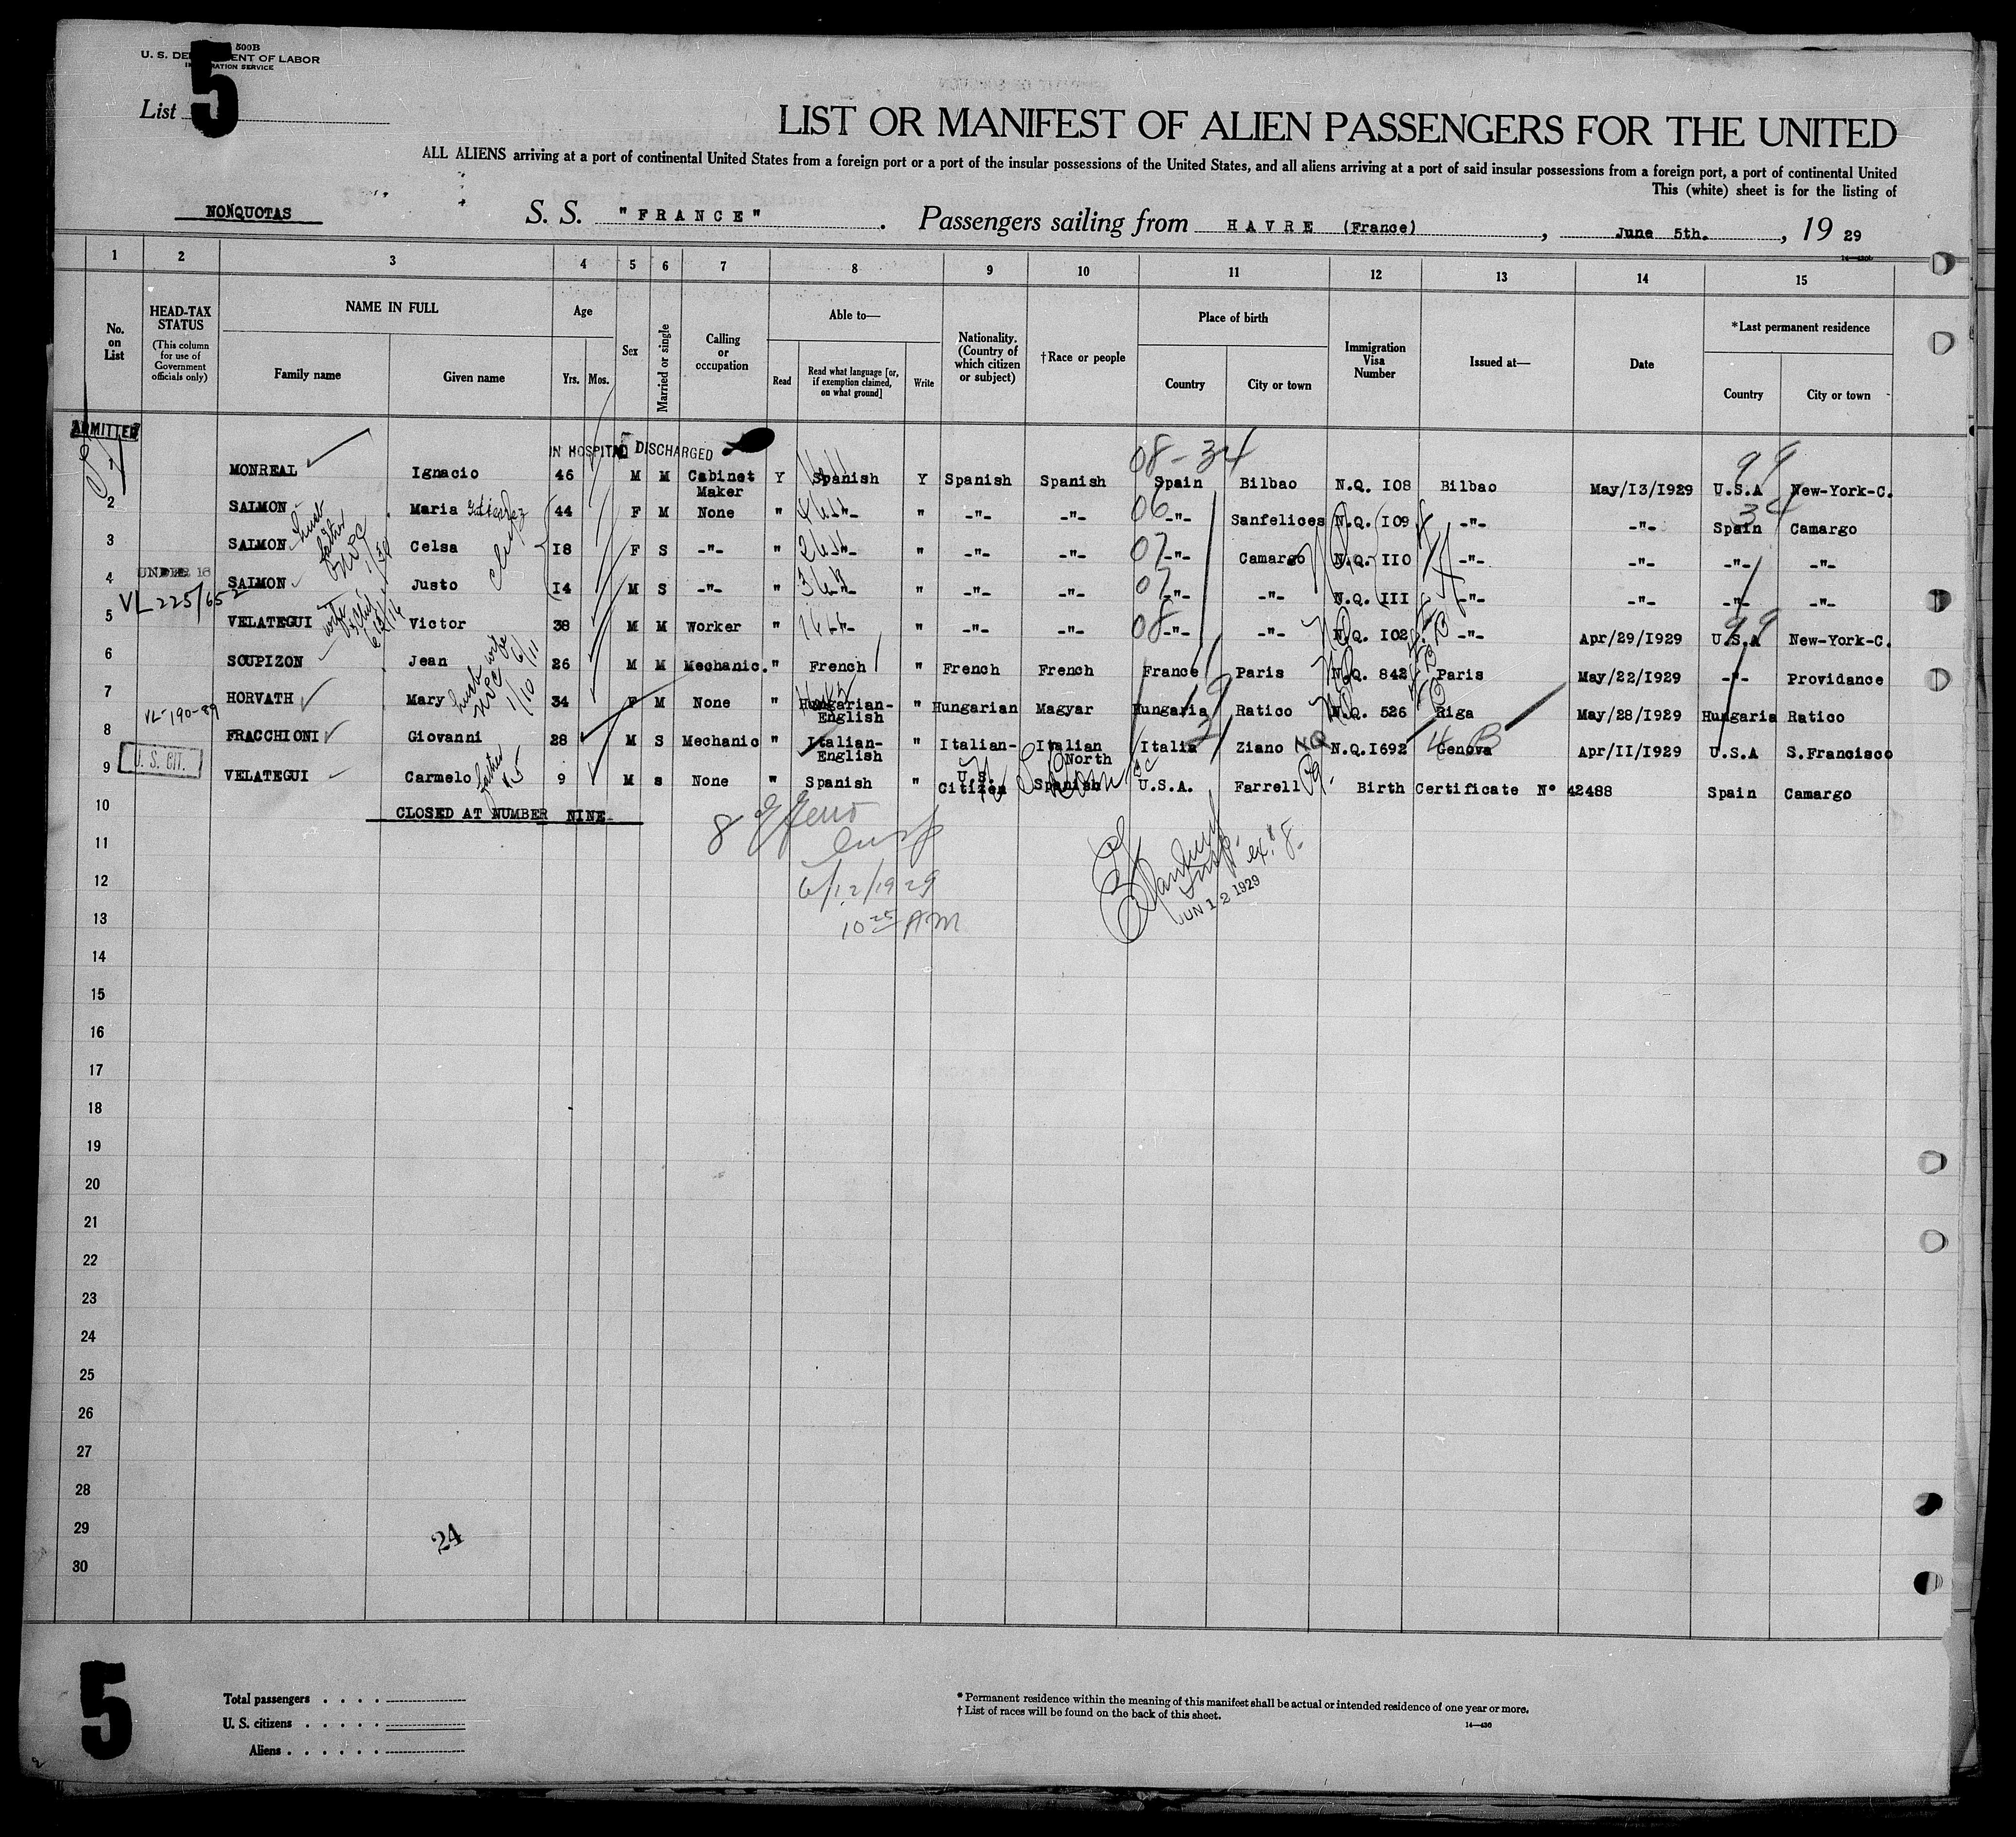 500B
U. S. DE ENT OF LABOR
IMMIGRATION SERVICE
List 5
LIST OR MANIFEST OF ALIEN PASSENGERS FOR THE UNITED
ALL ALIENS arriving at a port of continental United States from a foreign port or a port of the insular possessions of the United States, and all aliens arriving at a port of said insular possessions from a foreign port, a port of continental United
This (white) sheet is for the listing of
NONQUOTAS
S. S. "FRANCE". Passengers sailing from HAVRE (France), June 5th., 19 29
1 2 3 4 5 6 7 8 9 10 11 12 13 14 15
No. on List
HEAD-TAX STATUS (This column for use of Government officials only)
NAME IN FULL
Family name Given name
Age
Yrs. Mos.
Sex
Married or single
Calling or occupation
Able to—
Read
Read what language [or, if exemption claimed, on what ground]
Write
Nationality. (Country of which citizen or subject)
†Race or people
Place of birth
Country City or town
Immigration Visa Number
Issued at—
Date
*Last permanent residence
Country City or town
ADMITTED
IN HOSPITAL DISCHARGED
08-34 99
1 MONREAL Ignacio 46 M M Cabinet Maker Y Spanish Y Spanish Spanish Spain Bilbao N.Q. I08 Bilbao May/I3/I929 U.S.A New-York-C.
2 SALMON Maria Gutierrez 44 F M None " -"- " -"- -"- 06 -"- Sanfelices N.Q. I09 -"- -"- Spain Camargo
3 SALMON Celsa I8 F S -"- " -"- " -"- -"- 07 -"- Camargo N.Q. II0 -"- -"- -"- -"-
UNDER 16
4 SALMON Justo I4 M S -"- " -"- " -"- -"- 07 -"- -"- N.Q. III -"- -"- -"- -"-
VL 225/652
5 VELATEGUI Victor 38 M M Worker " -"- " -"- -"- 08 -"- -"- N.Q. I02 -"- Apr/29/I929 U.S.A New-York-C.
6 SOUPIZON Jean 26 M M Mechanic. " French " French French France Paris N.Q. 842 Paris May/22/I929 -"- Providance
7 HORVATH Mary 34 F M None " Hungarian-English " Hungarian Magyar Hungaria Ratico N.Q. 526 Riga May/28/I929 Hungaria Ratico
VL-190-89
8 FRACCHIONI Giovanni 28 M S Mechanic " Italian-English " Italian- Italian North Italia Ziano N.Q.I692 Genova Apr/II/I929 U.S.A S.Francisco
U. S. CIT.
9 VELATEGUI Carmelo 9 M s None " Spanish " U.S. Citizen Spanish U.S.A. Farrell Pa. Birth Certificate N° 42488 Spain Camargo
10 CLOSED AT NUMBER NINE
11
12
6/12/1929
JUN 12 1929
13
10 25 AM
14
15
16
17
18
19
20
21
22
23
24
25
26
27
28
29
24
30
5
Total passengers . . . .
U. S. citizens . . . . .
Aliens . . . . . .
* Permanent residence within the meaning of this manifest shall be actual or intended residence of one year or more.
† List of races will be found on the back of this sheet.
14—430